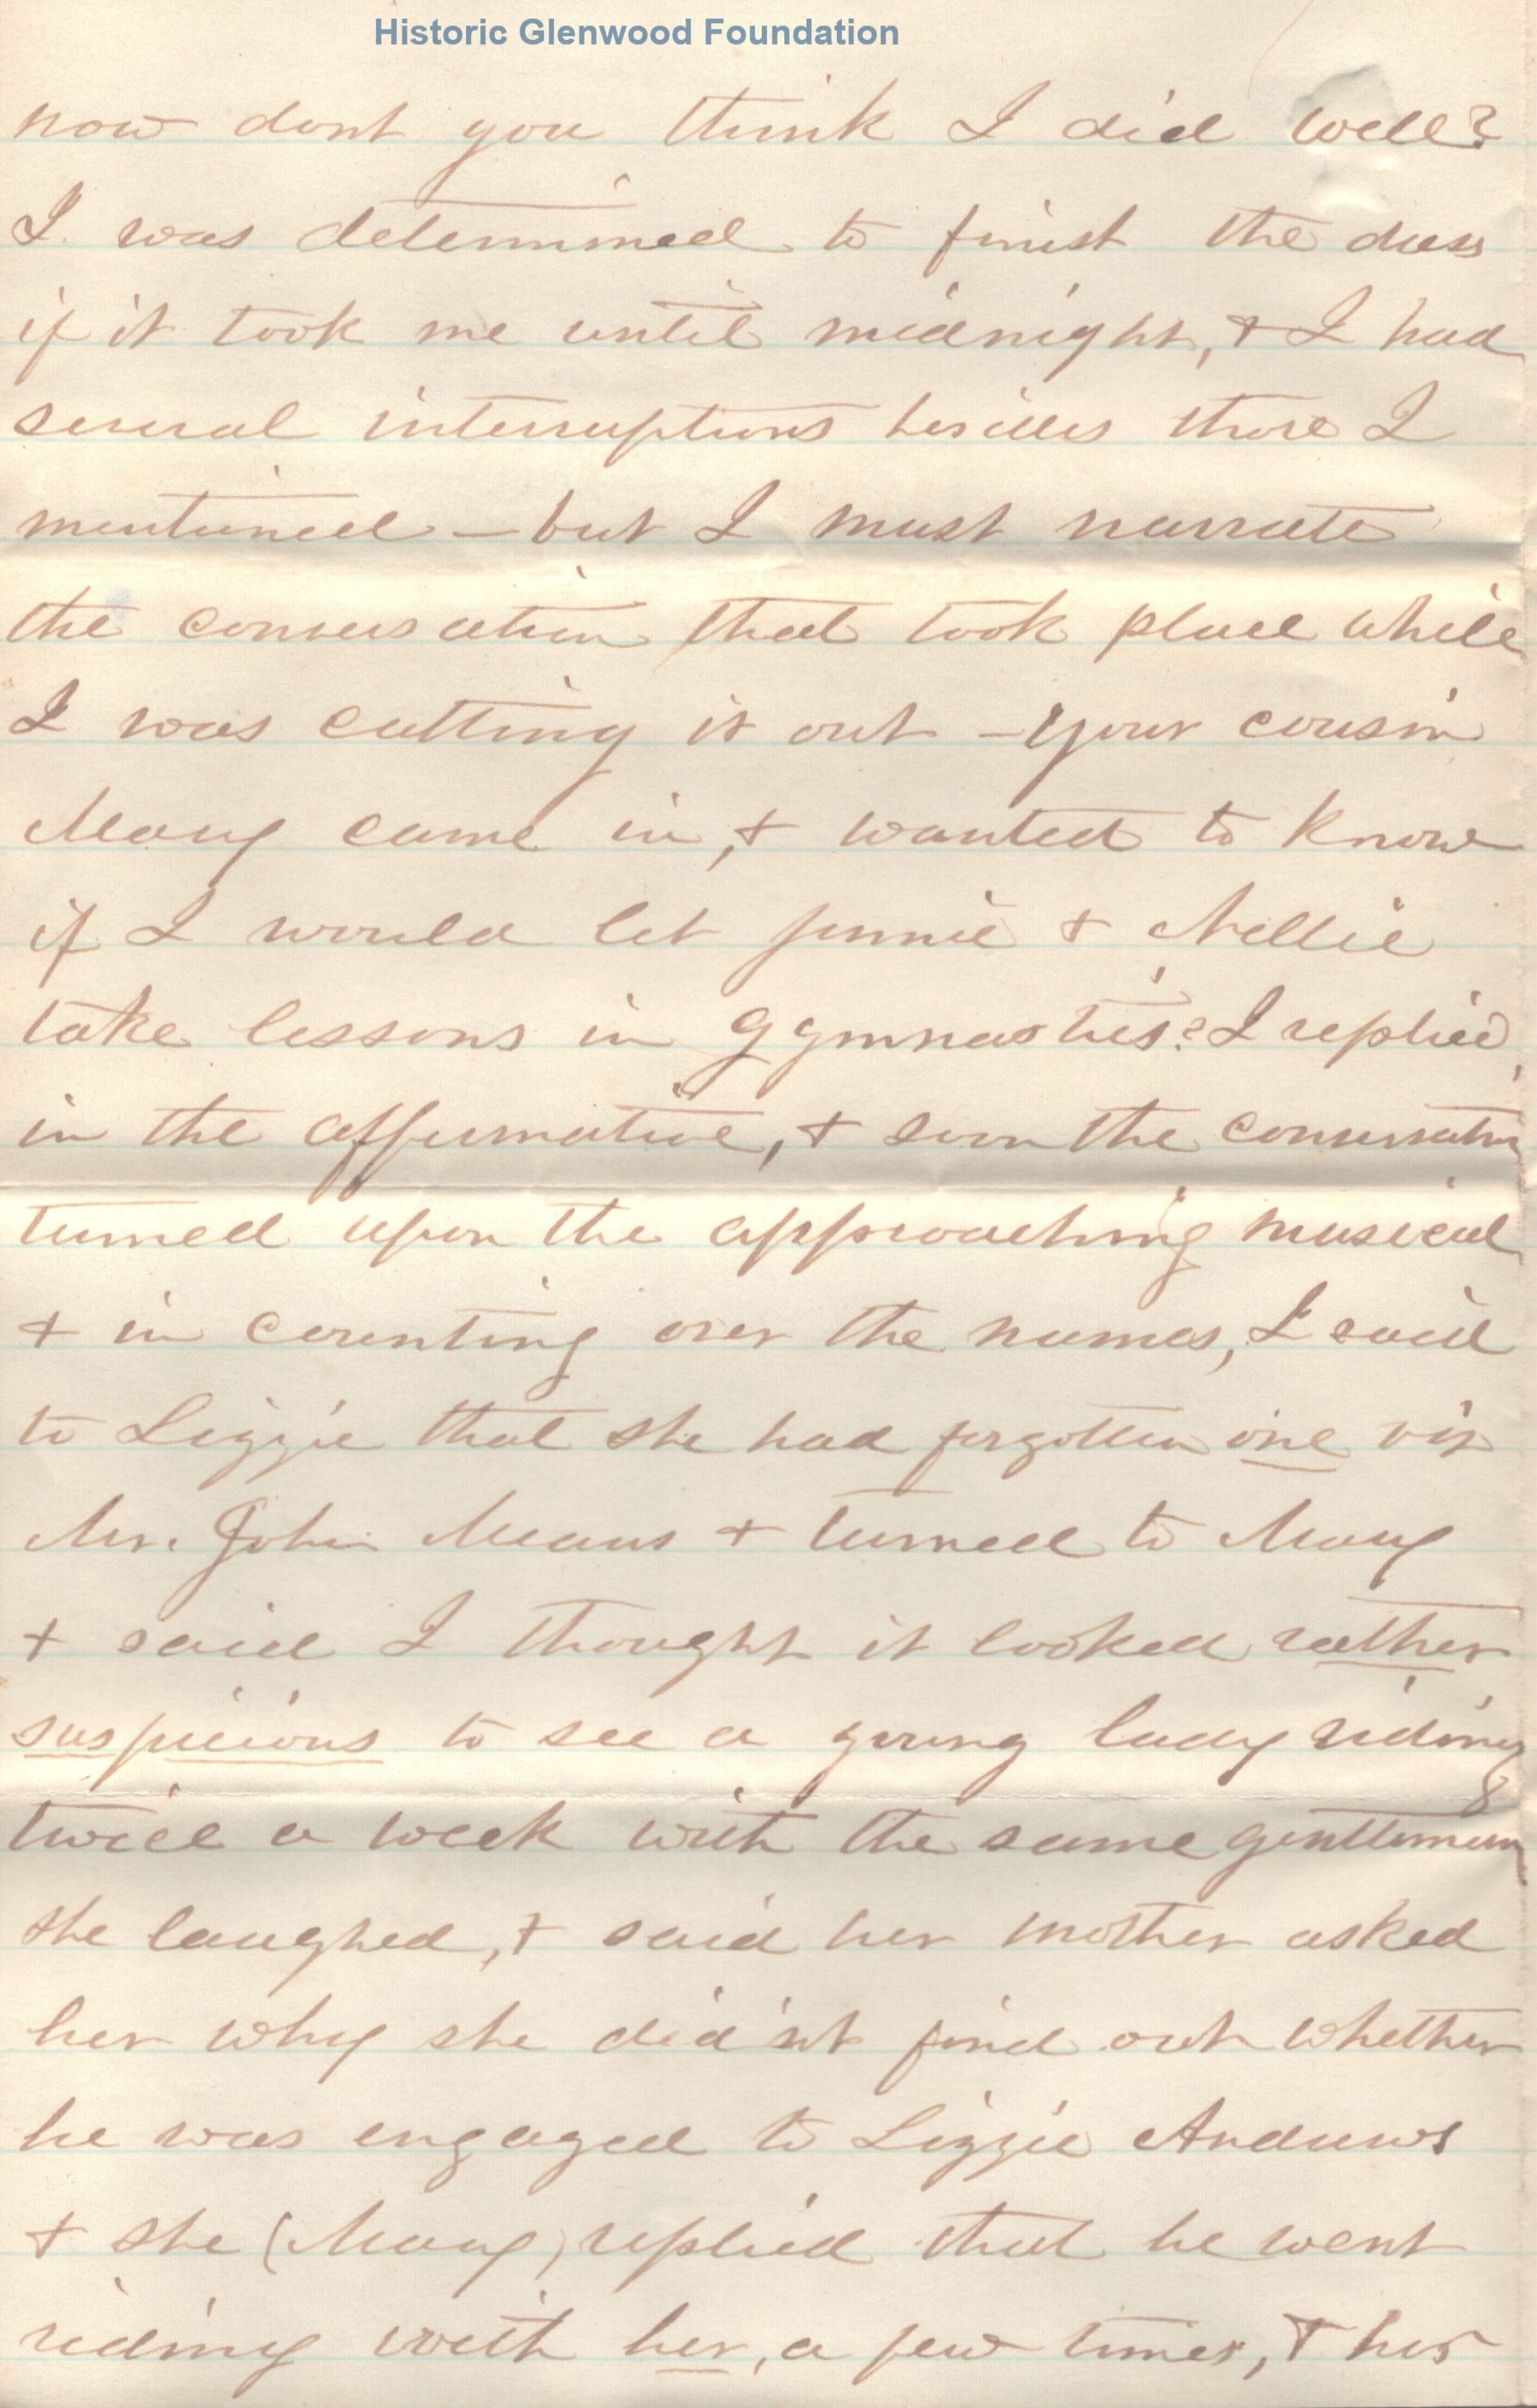 Historic Glenwood Foundation
now dont you think I did well?
I was determined to finish the dress
if it took me until midnight, & I had
several interruptions besides those I
mentioned – but I must narrate
the conversation that took place while
I was cutting it out – your cousin
Mary came in, & wanted to know
if I would let Jennie & Nellie
take lessons in Gymnastics? I replied
in the affirmative, & soon the conversation
turned upon the approaching musical
& in counting over the names, I said
to Lizzie that she had forgotten one viz
Mr. John Means & turned to Mary
& said I thought it looked rather
suspicious to see a young lady riding
twice a week with the same gentleman
she laughed, & said her mother asked
her why she did'nt find out whether
he was engaged to Lizzie Andrews
& she (Mary) replied that he went
riding with her, a few times, & his